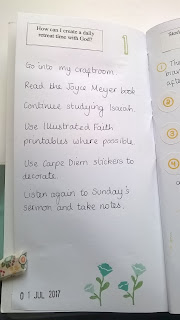 How can I create a daily
retreat time with God?
1
Go into my craftroom.
Read the Joyce Meyer book
Continue studying Isaiah.
Use Illustrated Faith
printables where possible.
Use Carpe Diem stickers to
decorate.
Listen again to Sunday's
sermon and take notes.
01 JUL 2017
1
2
3
4